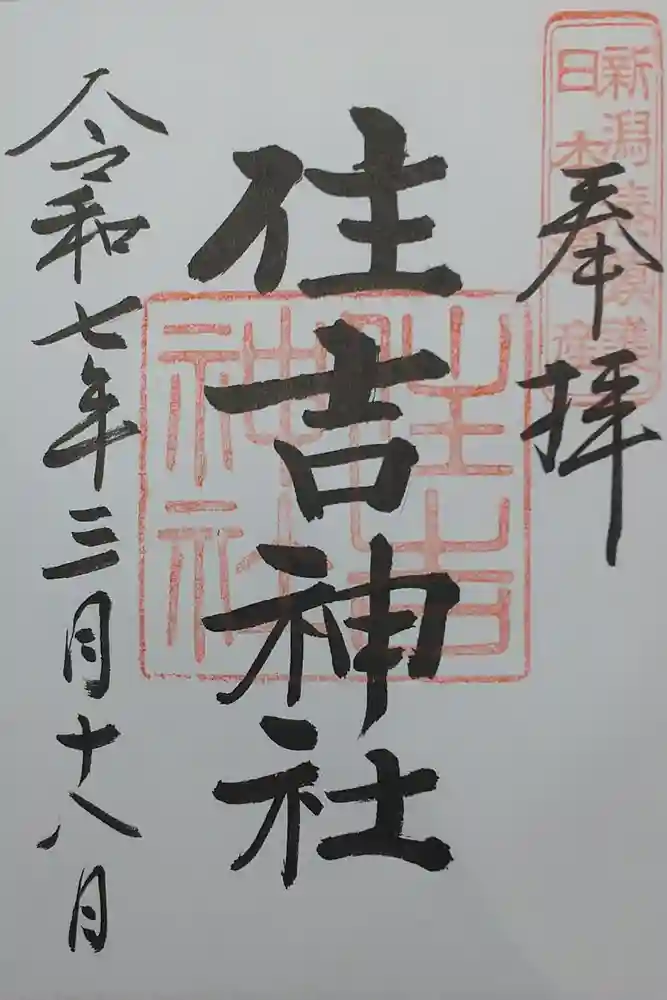 奉拝
住吉神社
令和七年三月十八月
住吉
神社
新潟
日本